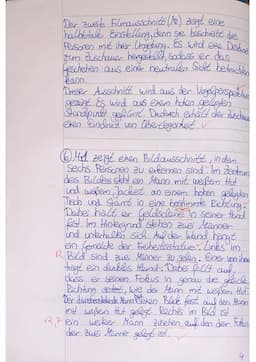 Der zweite Filmausschnitt (M2) zeigt eine
halbtotale Einstellung, denn sie beschreibt die
Personen mit ihrer Umgebung. Es wird eine Distanz
zum Zuschauer hergestellt, sodass er das
Geschehen aus einer neutralen Sicht betrachten
kann.
Dieser Ausschnitt wird aus der Vogelperspektive
gezeigt. Es wird aus einem hohen gelegten
Standpunkt gefilmt. Dadurch erhält der Zuschauer
einen Eindruck von Überlegenheit.
M1 zeigt einen Bildausschnitt, in dem
sechs Personen zu erkennen sind. Im Zentrum
des Bildes steht ein Mann mit weißem Hut
und weißem Jacket an einem hohen gelegten
Tisch und starrt in eine bestimmte Richtung.
Dabei hält er Geldscheine in seiner Hand
fest. Im Hintergrund stehen zwei Männer
und unterhalten sich. Auf der Wand hängt
ein Gemälde der Freiheitsstatue. Links im
R Bild sind zwei Männer zu sehen. Einer von ihnen
trägt ein dunkles Hemd. Dabei fällt auf,
dass er seinen Fokus in genau die gleiche
Richtung setzt, wie der Mann mit weißem Hut.
Blick fest auf den Mann
mit weißen Hut gelegt. Rechts im Bild ist
R, Z ein weiterer Mann zu sehen, auf den der Fokus
der zwei Männer gelegt ist.
4